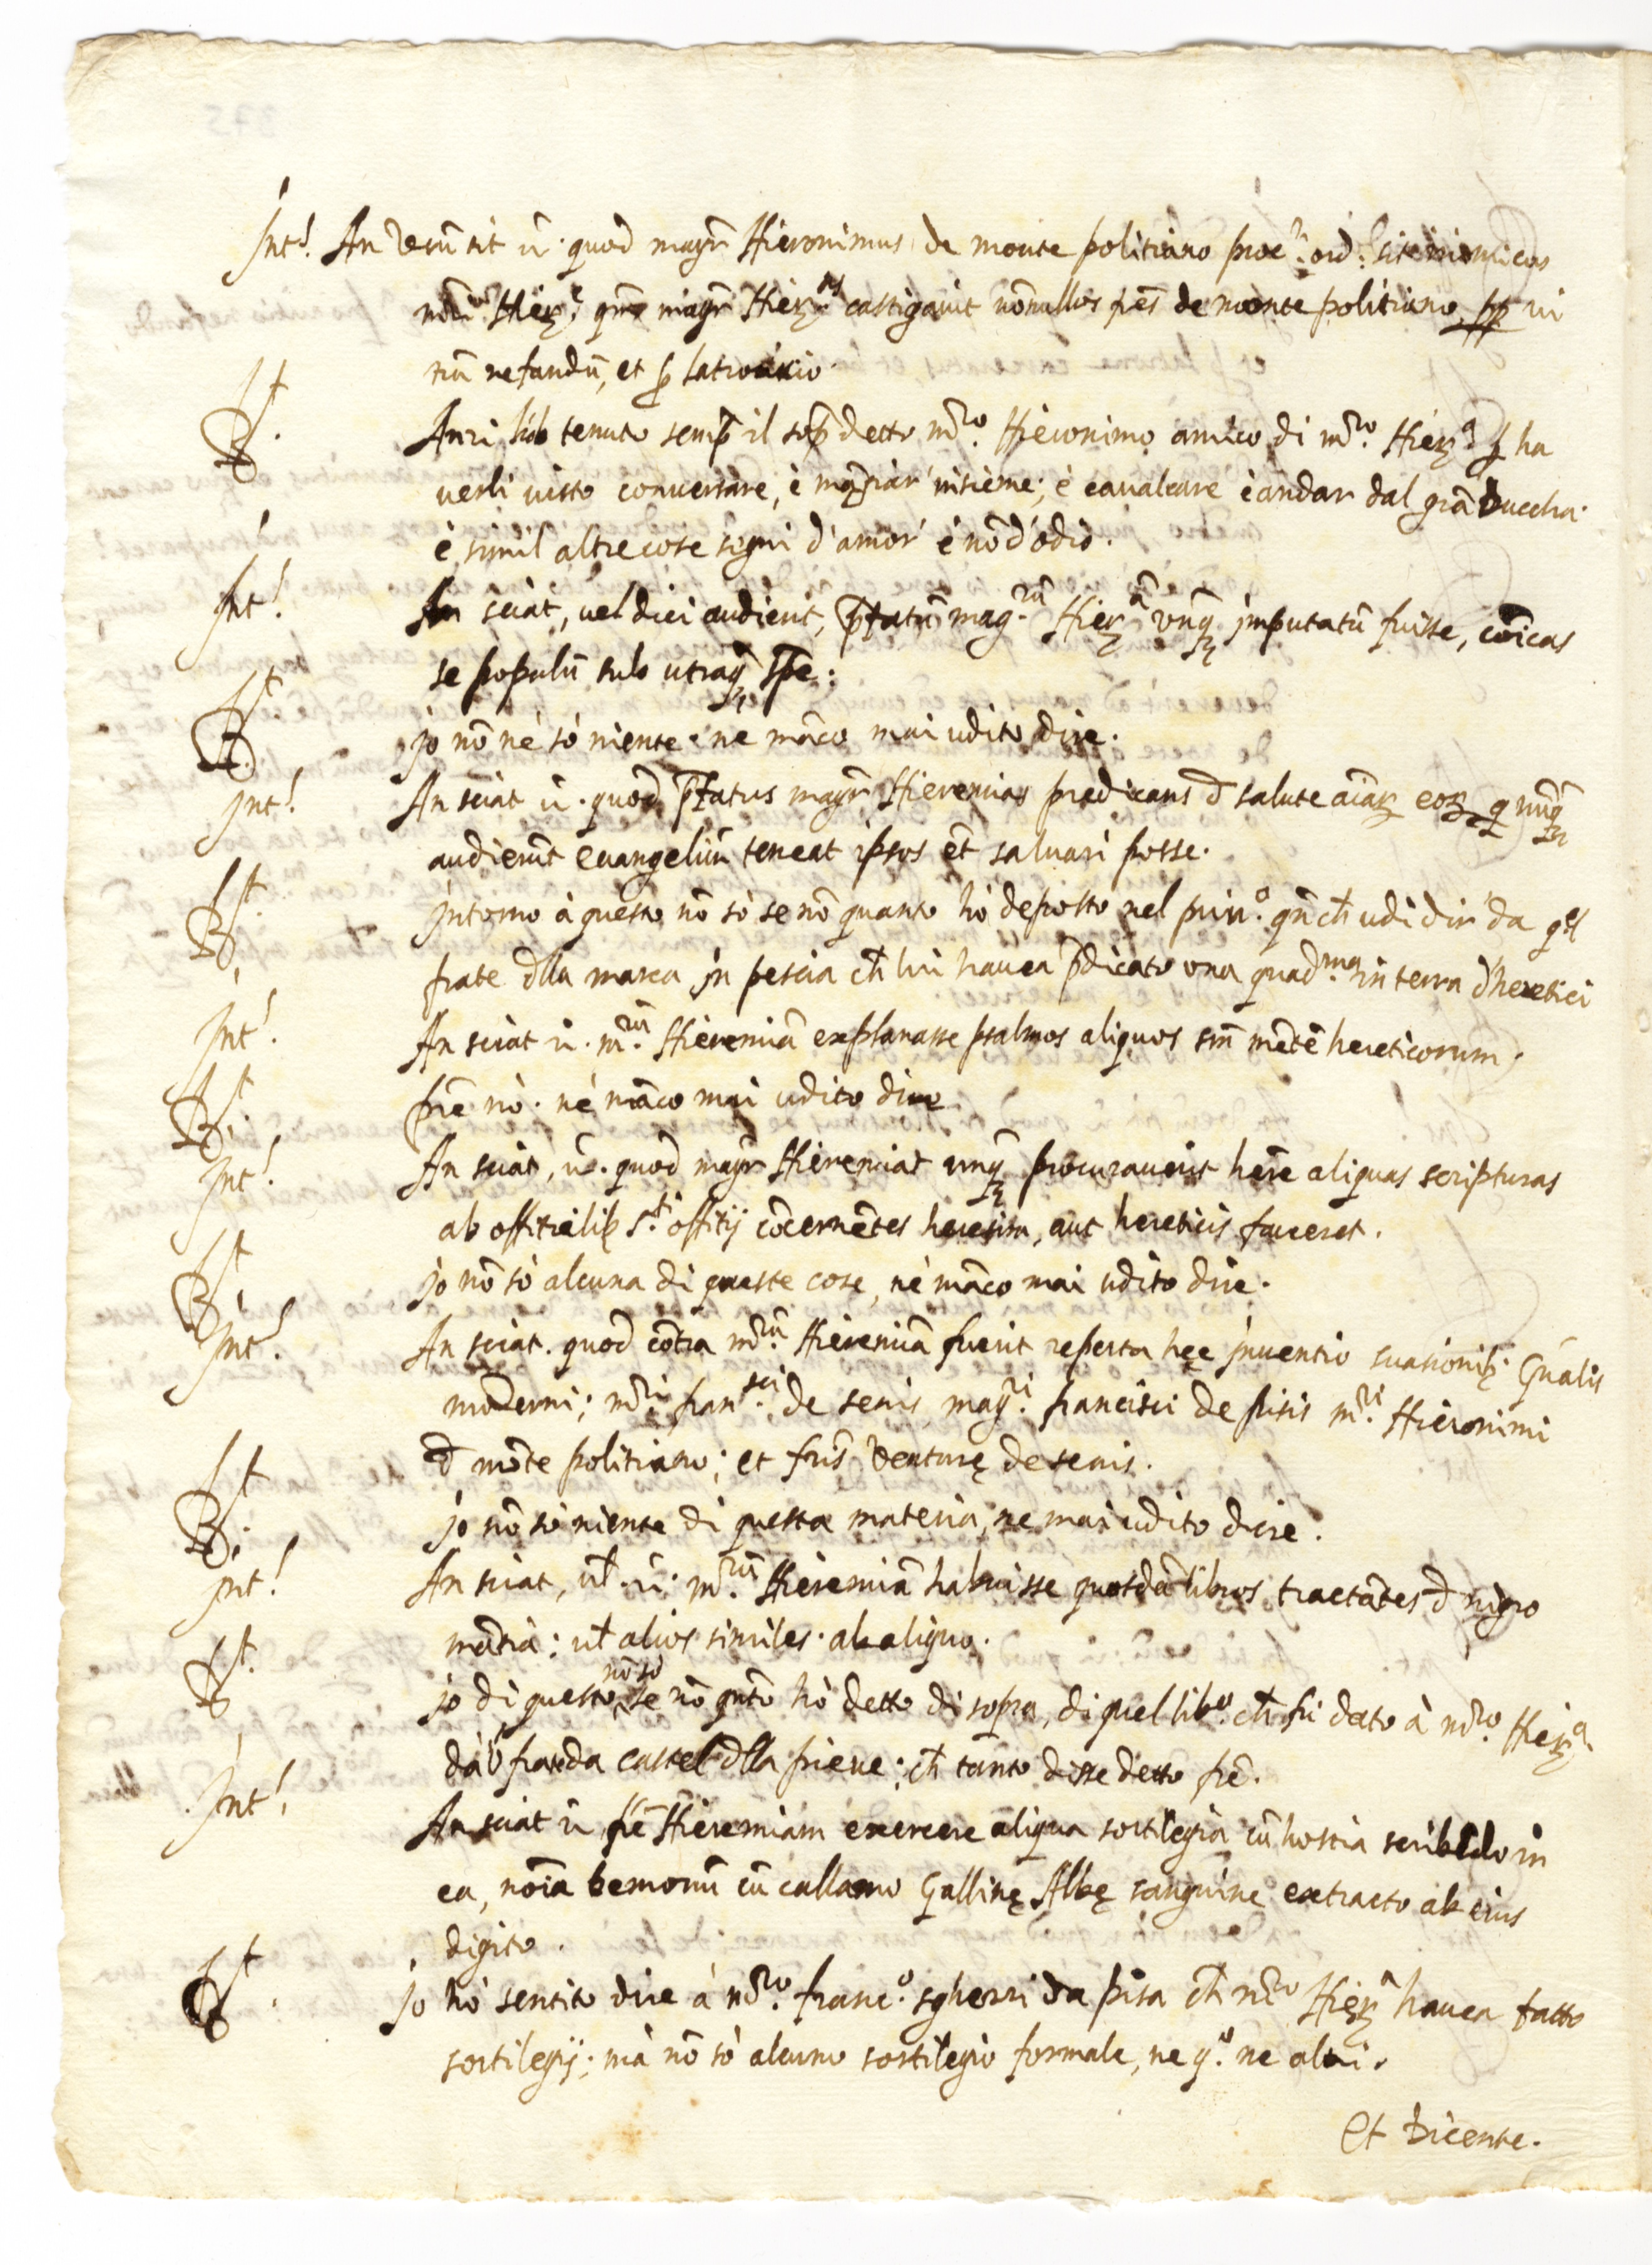 Int! An verũ sit ũ. quod magr̃ Hieronimus de monte politiano proc.r ord: sit inimicus
mr̃i Hier.e qm̃ magr̃ Hier.as castigavit nõnullos fr̃es de monte politiano, pp vi
tiũ nefandũ, et p latrocinio
Rt. Anzi hò tenuto semp il sop detto m.ro Hieronimo amico di m.ro Hier.a p ha
verli visto conversare, è mãgiar' insieme, è cavalcare è andar dal grã Duccha
è simil altre cose segni d'amor' è nõ d'odio.
Int! An sciat, vel dici audierit, p̃fatũ mag.rũ Hier.ã unq̃ imputatũ fuisse, cõicas
se populũ sub utraq̃ spẽ:
Rt. jo nõ nè sò niente. ne mãco mai udito dire.
jnt! An sciat ũ. quod p̃fatus magr̃ Hieremias predicans đ salute aĩaꝝ eoꝝ q nũq̃
audierũt evangeliũ teneat ipsos et̃ salvari posse.
Rt. jntorno à questo nõ sò se nõ quanto hò deposto nel prin.o qñ ch̃ udi dir' da q.el
frate đlla marca jn pescia ch̃ lui havea p̃dicato una quad.ma in terra đ heretici
Int! An sciat ũ. m.rũ Hieremiã explanasse psalmos aliquos sm̃ mẽtẽ hereticorum.
Rt. pr̃e nò. né mãco mai udito dire
jnt! An sciat, ũ. quod magr̃ Hieremias unq̃ procuraverit her̃e aliquas scripturas
ab offitialib S.ti offitij cõcernẽtes heresim, aut hereticis faveret.
Rt. jo nõ sò alcuna di queste cose, nè mãco mai udito dire.
jnt! An sciat. quod cõtra m.rũ Hieremiã fuerit reperta hec jnventio suasionib. Gñalis
moderni; m.ri fran.sci de senis mag.ri francisci de pisis m.ri Hieronimi
đ mõte politiano; et fr̃is Venturę de senis.
Rt. jo nõ sò niente di questa materia, ne mai udito dire.
jnt! An sciat, vł. ũ. m.rũ Hieremiã habuisse quosdã libros tractãtes đ nigro
mãtia: vł alios similes. ab aliquo.
Rt. jo di questo nõ sò se nõ qñtõ hò detto di sopra, di quel lib.o ch̃ fù dato à m.ro Hier.a
da ũ frã da castel đlla pieve; ch̃ tãnto disse detto frẽ.
Int! An sciat ũ fr̃ẽ Hieremiam exercere aliqua sortilegia cũ hostia scribẽdo in
ea, nõia demonũ cũ callamo Gallinę Albę sanguine extracto ab eius
digito.
Rt. jo hò sentito dire à m.ro franc.o sgherri da pisa ch̃ m.ro Hier.a havea fatto
sortilegij; mà nõ sò alcuno sortilegio formale, ne q.o ne altri.
Et dicente.